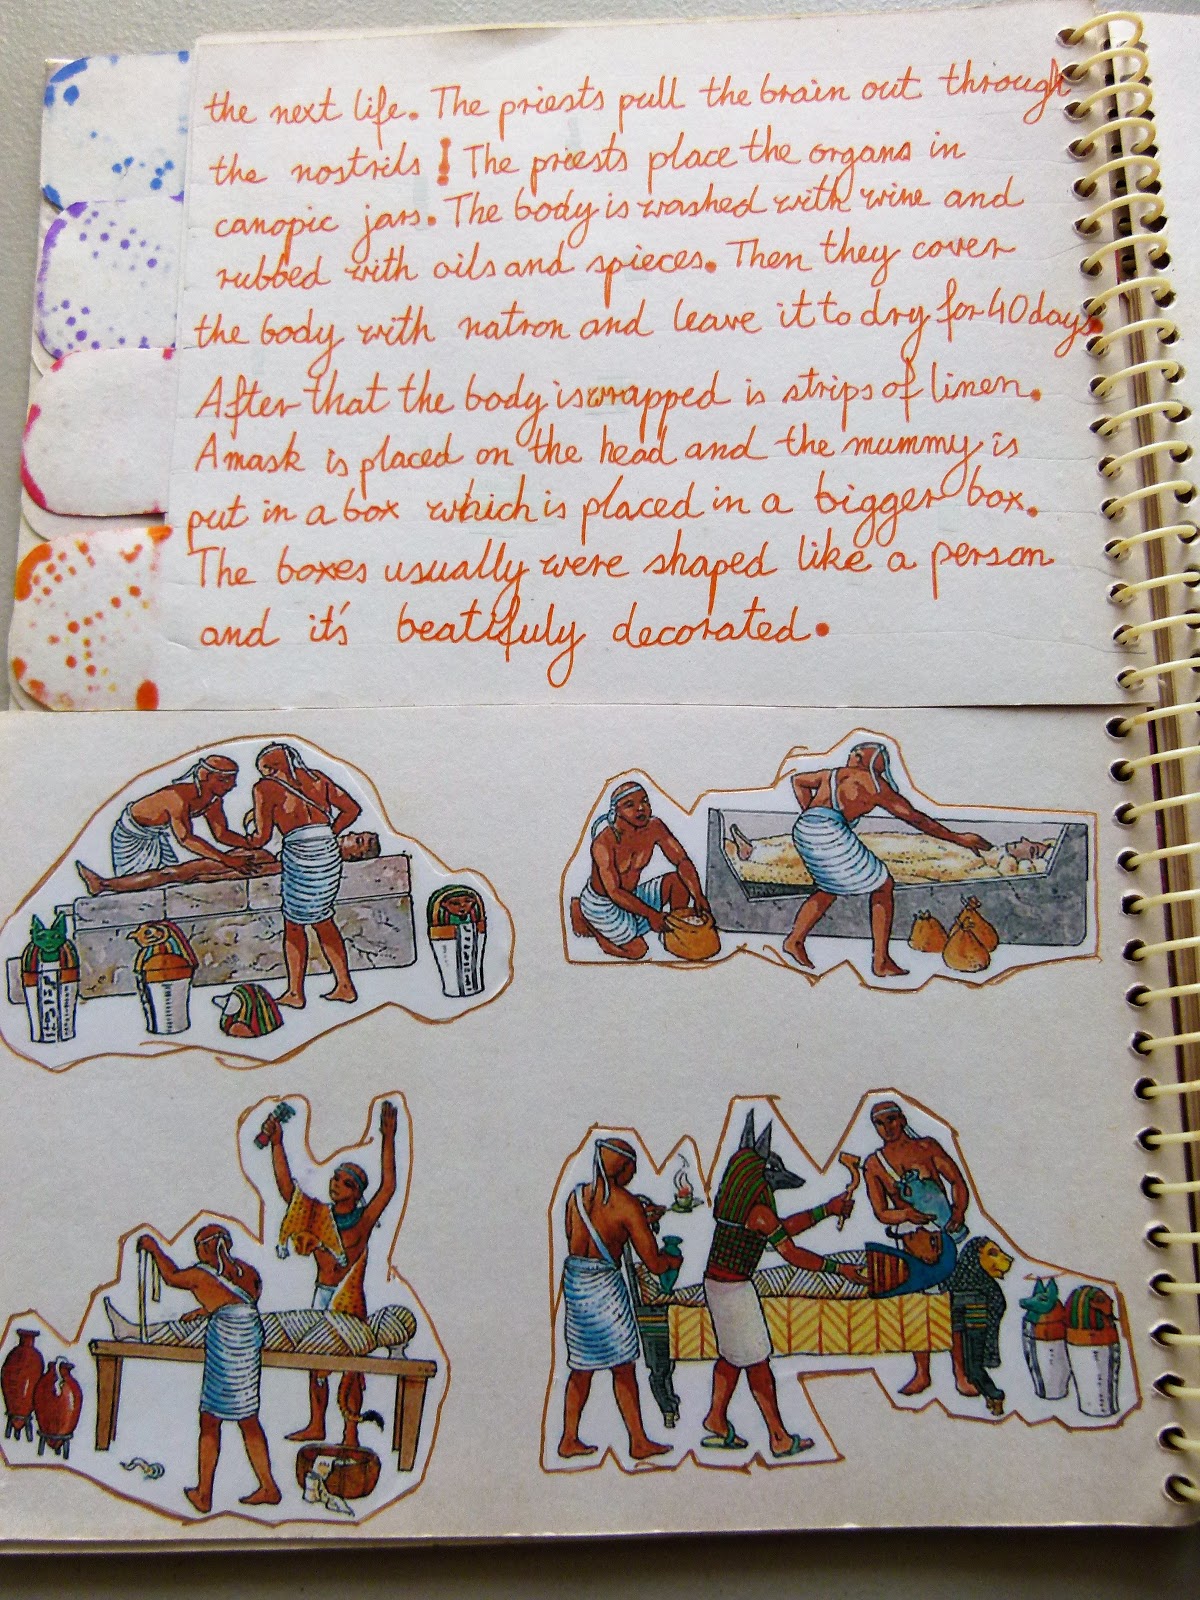 the next life. The priests pull the brain out through
the nostrils! The priests place the organs in
canopic jars. The body is washed with wine and
rubbed with oils and spieces. Then they cover
the body with natron and leave it to dry for 40 days.
After that the body is wrapped is strips of linen.
A mask is placed on the head and the mummy is
put in a box which is placed in a bigger box.
The boxes usually were shaped like a person
and it's beatifuly decorated.